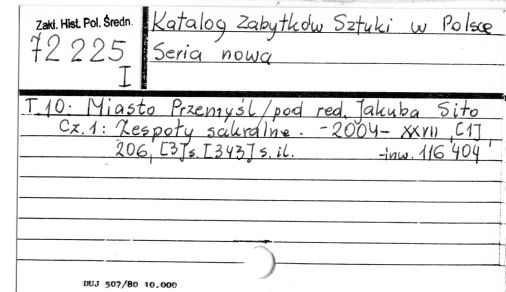 Zakł. Hist. Pol. Średn.
72225
I
Katalog Zabytków Sztuki w Polsce
Seria nowa
T.10: Miasto Przemyśl / pod red. Jakuba Sito
Cz. 1: Zespoły sakralne. - 2004 - XXVII, [1]
206, [3] s. [343] s. il.
-inw. 116 404
DUJ 507/80 10.000